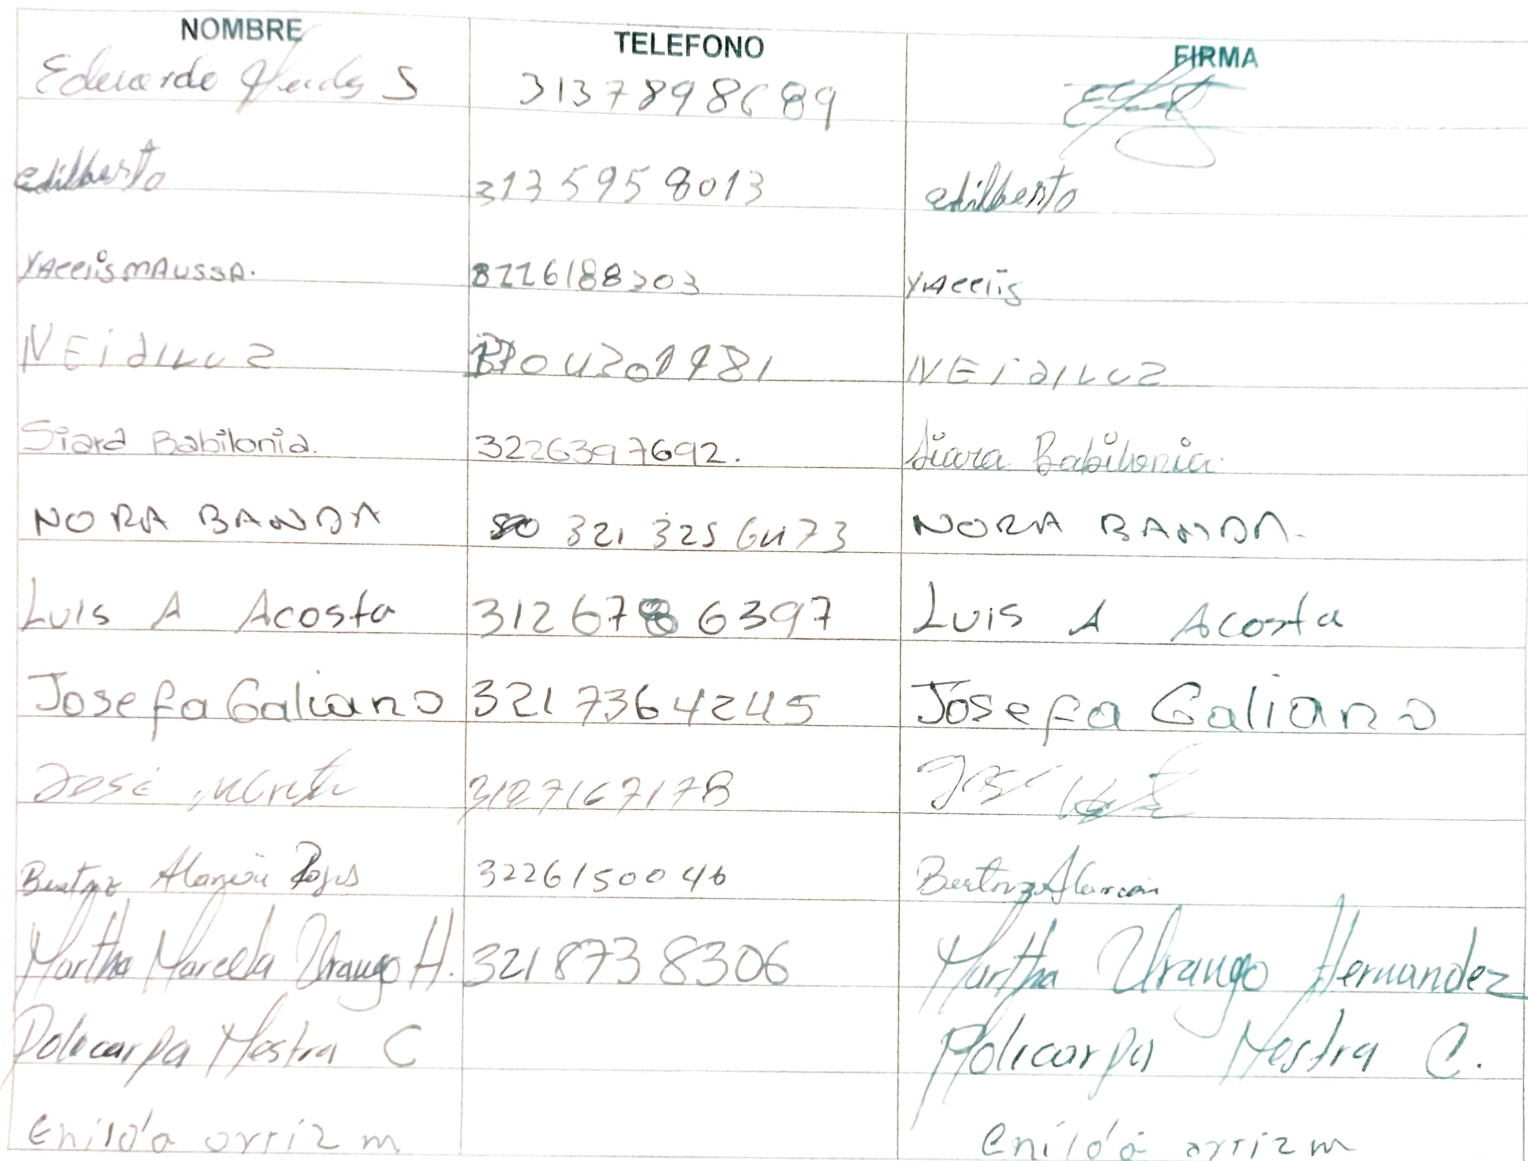 NOMBRE TELEFONO FIRMA
Eduardo S 3137898689
edilberto 3135958013 edilberto
YAceiis MAUSSA. 3226188303 YAceiis
NEidiluz NEidiluz
Siara Babilonia. 3226397692. Siara Babilonia.
NORA BANDA 321 325 6473 NORA BANDA.
Luis A Acosta 312678 6397 Luis A Acosta
Josefa Galiano 3217364245 Josefa Galiano
José 3127167178
Beatriz Alarcón Rojas 3226150046 Beatriz Alarcón
Martha Marcela Urango H. 321 873 8306 Martha Urango Hernandez
Policarpa Mestra C Policarpa Mestra C.
Enilda ortiz m Enilda ortiz m